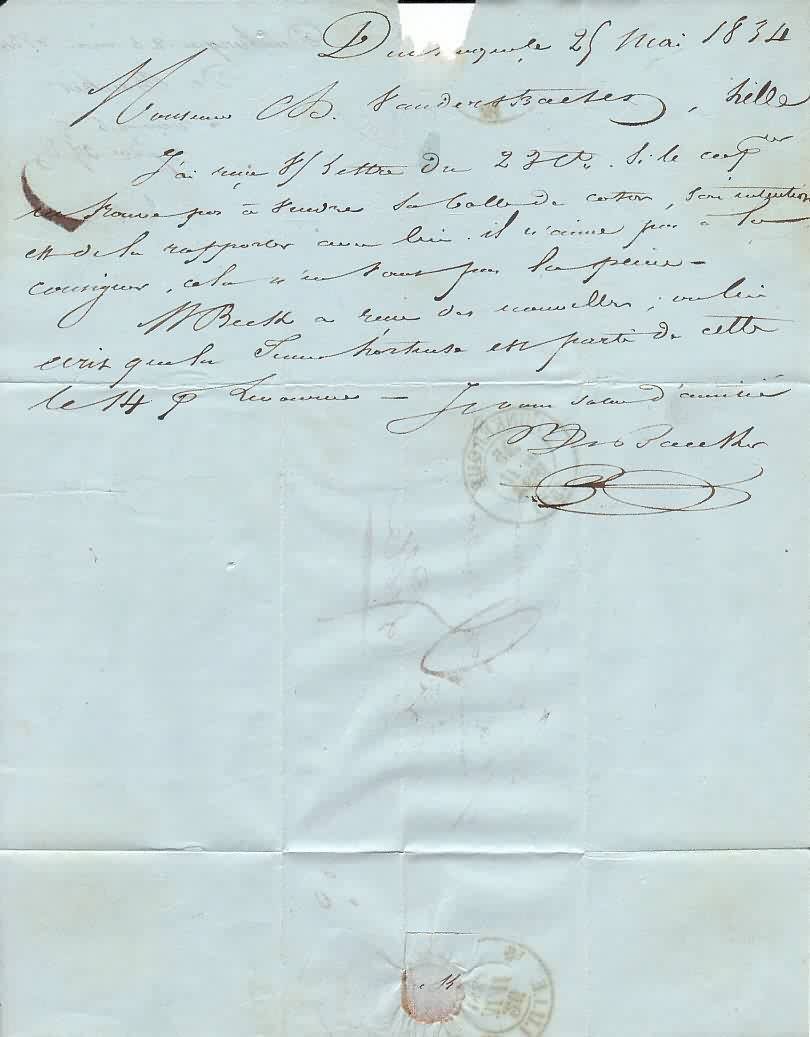 Dunkerque le 25 Mai 1834
Monsieur Vanderstraeten, Lille
J'ai reçu V/ Lettre du 23 Ct. Si le cap.
ne trouve pas à vendre sa balle de coton, son intention
est de la rapporter avec lui. il n'aime pas à la
consigner, cela n'en vaut pas la peine –
Mr Beck a reçu des nouvelles, on lui
écrit que la Jeune hortense est partie de Cette
le 14 p Livourne – Je vous salue d'amitié